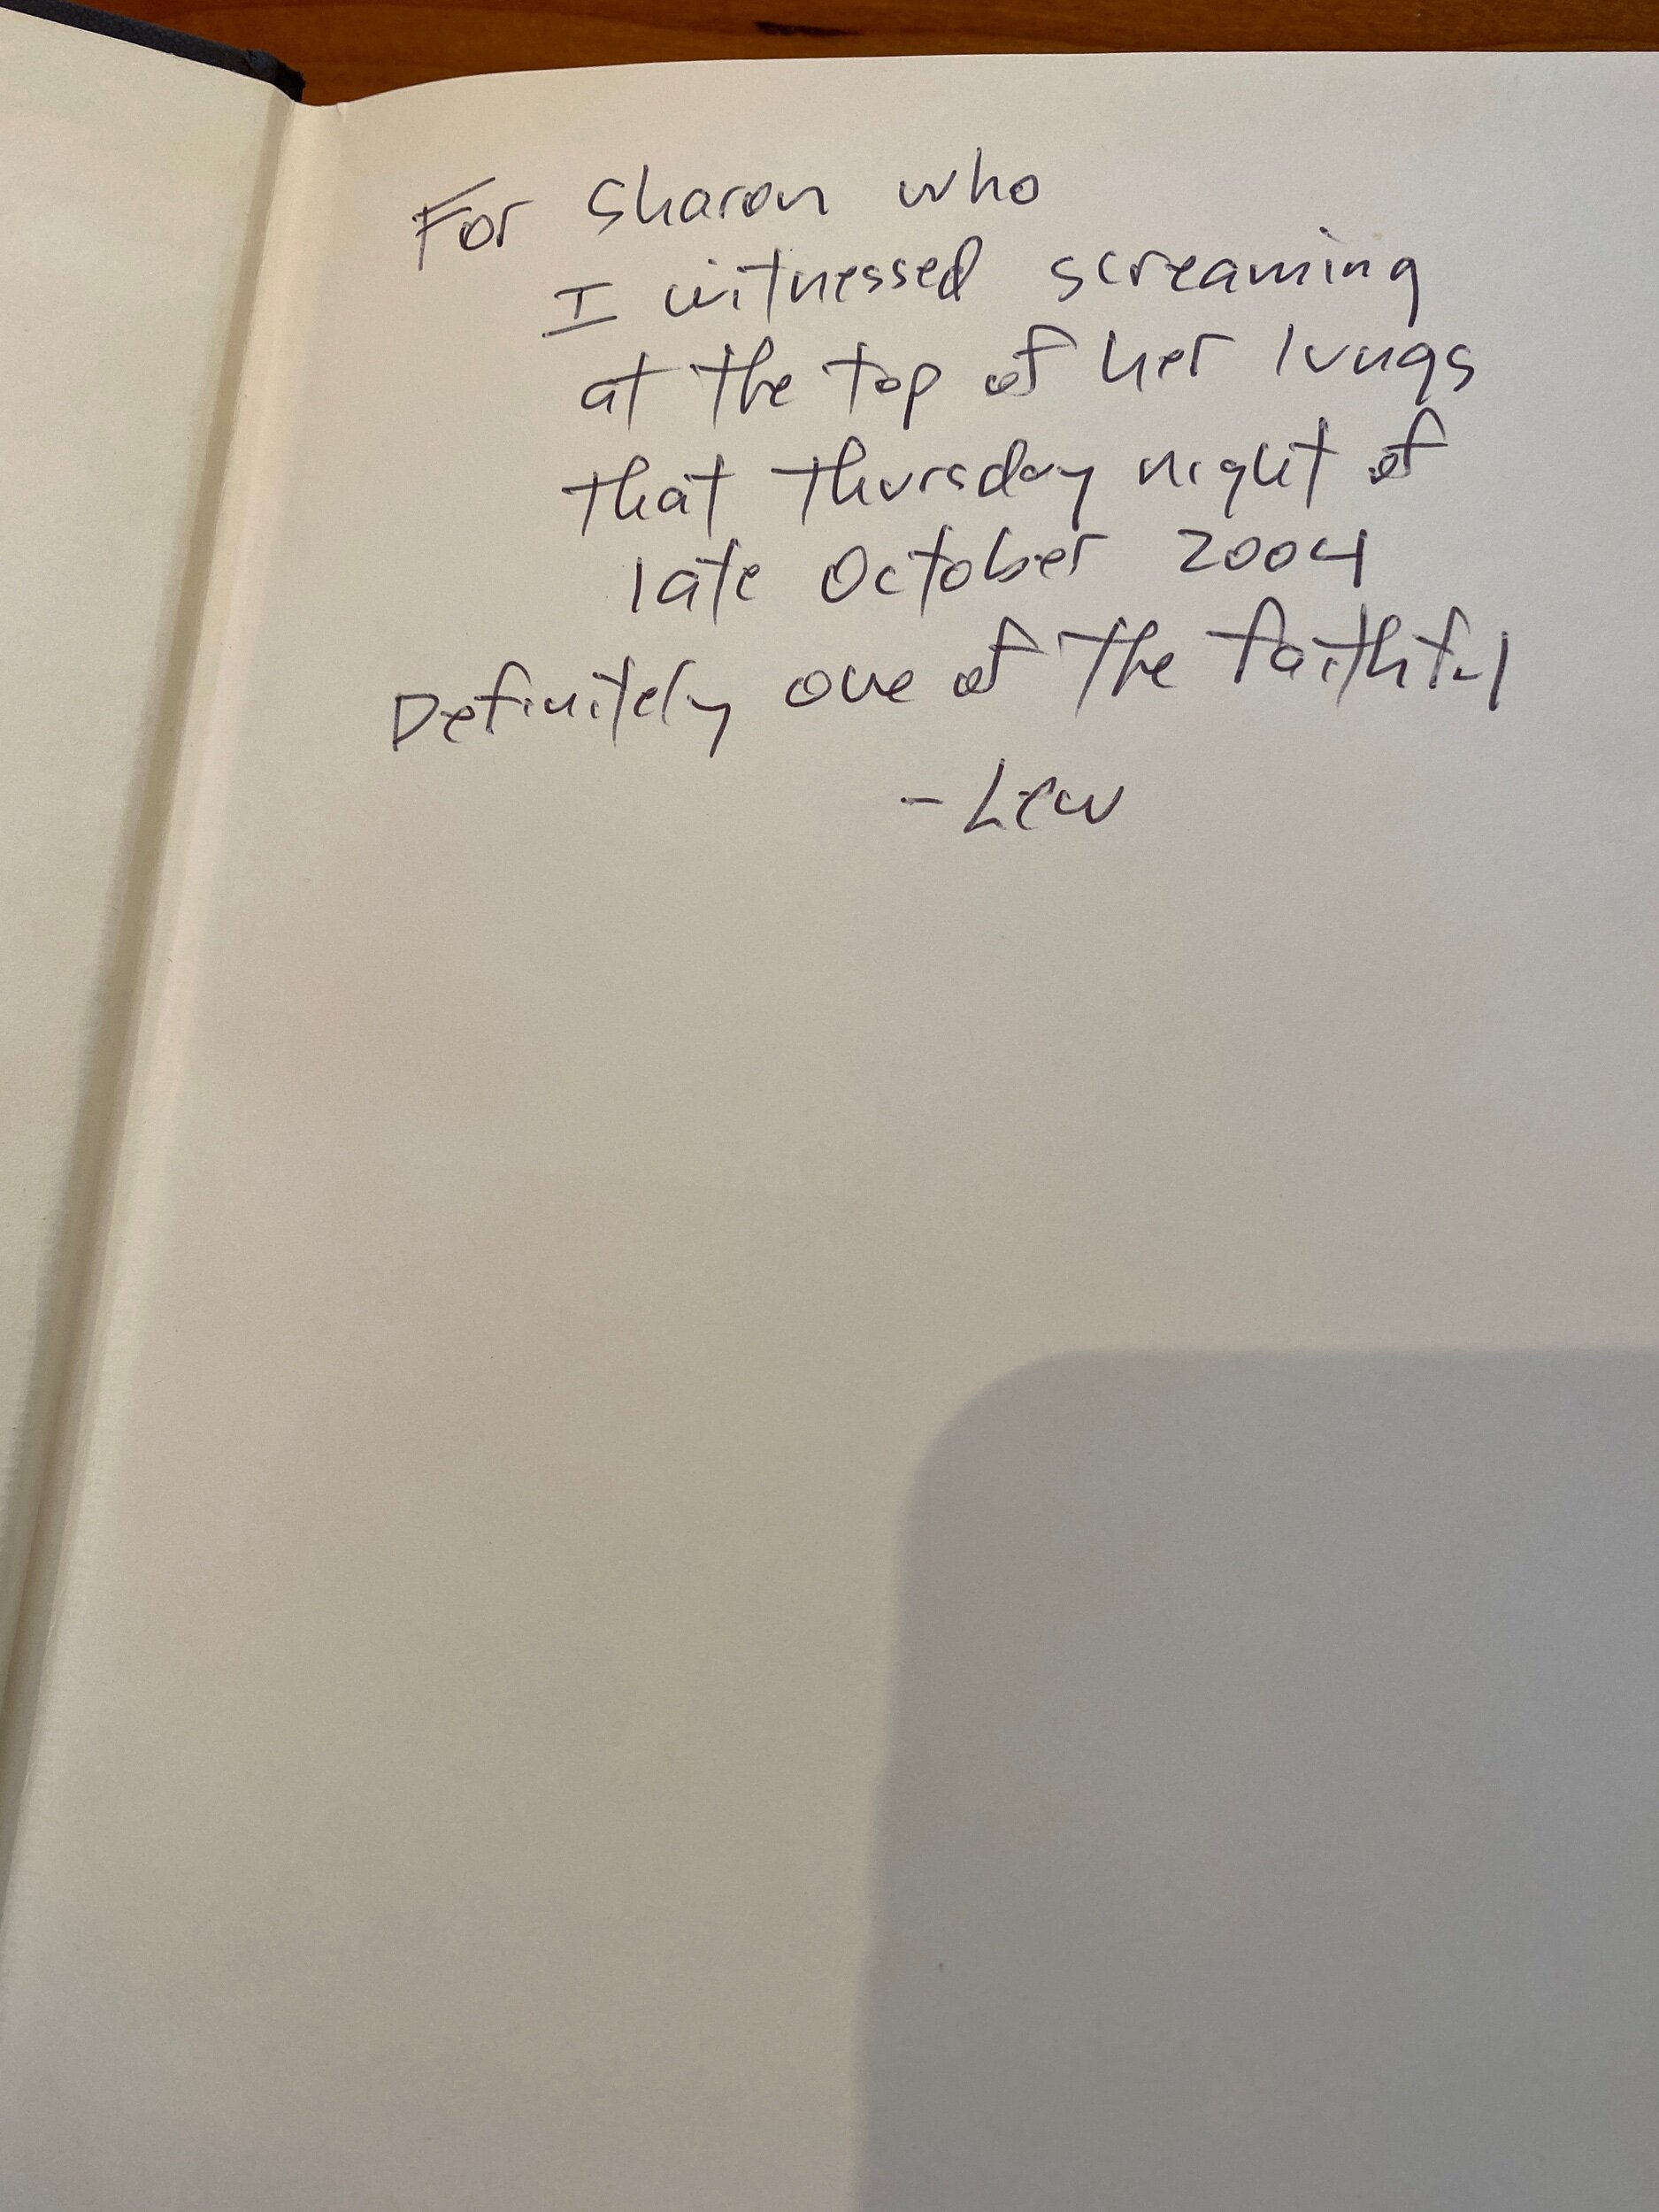 For Sharon who
I witnessed screaming
at the top of her lungs
that Thursday night of
late October 2004
Definitely one of the faithful
- Lew